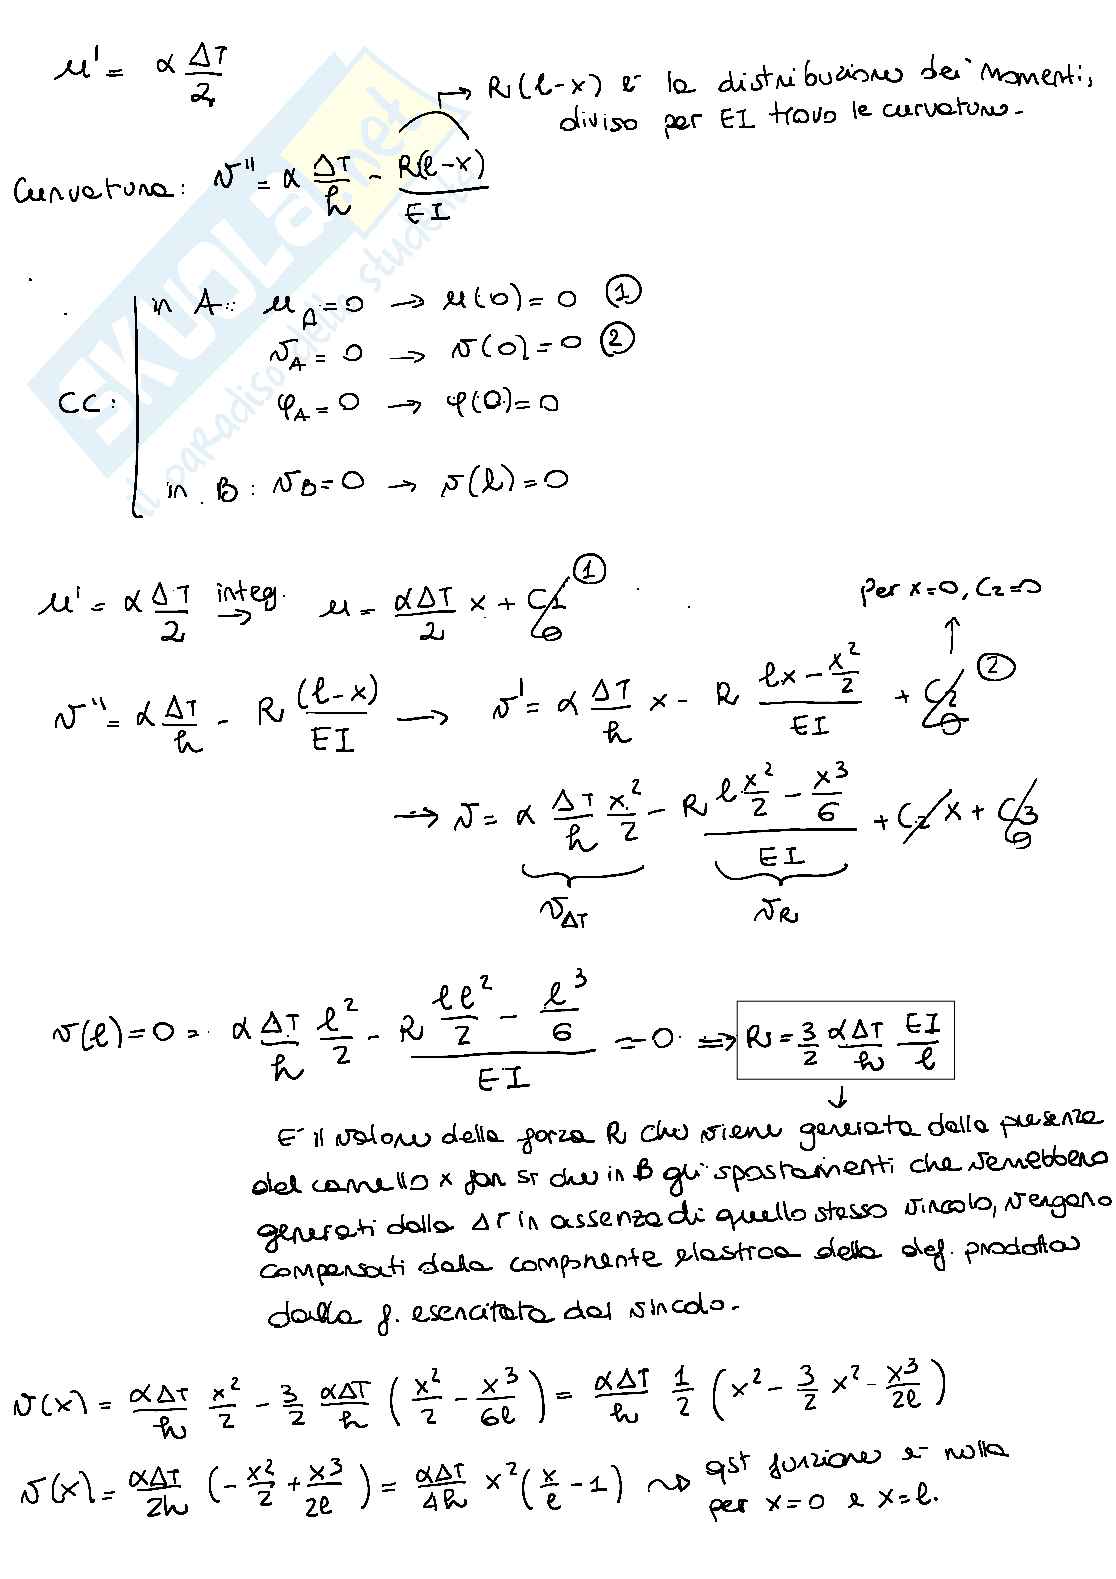 u' = α ΔT/2
→ R(l-x) è la distribuzione dei momenti,
diviso per EI trovo le curvature.
Curvatura: v'' = α ΔT/h - R(l-x)/EI
in A: u_A = 0 → u(0) = 0 ①
v_A = 0 → v(0) = 0 ②
CC: φ_A = 0 → φ(0) = 0
in B: v_B = 0 → v(l) = 0
u' = α ΔT/2 integ. → u = αΔT/2 x + C1 0 ①
per x=0, C2=0
v'' = α ΔT/h - R (l-x)/EI → v' = α ΔT/h x - R (lx - x²/2)/EI + C2 0 ②
→ v = α ΔT/h x²/2 - R (l x²/2 - x³/6)/EI + C2 x + C3 0
v_ΔT v_R
v(l) = 0 = α ΔT/h l²/2 - R (l l²/2 - l³/6)/EI = 0 ⇒ R = 3/2 αΔT/h EI/l
E' il valore della forza R che viene generata dalla presenza
del carrello x far sì che in B gli spostamenti che verrebbero
generati dalla ΔT in assenza di quello stesso vincolo, vengano
compensati dalla componente elastica della def. prodotta
dalla f. esercitata dal vincolo.
v(x) = αΔT/h x²/2 - 3/2 αΔT/h (x²/2 - x³/6l) = αΔT/h 1/2 (x² - 3/2 x² - x³/2l)
v(x) = αΔT/2h (-x²/2 + x³/2l) = αΔT/4h x² (x/l - 1) ⇝ qst funzione è nulla
per x=0 e x=l.
SKUOLA.net
il paradiso dello studente